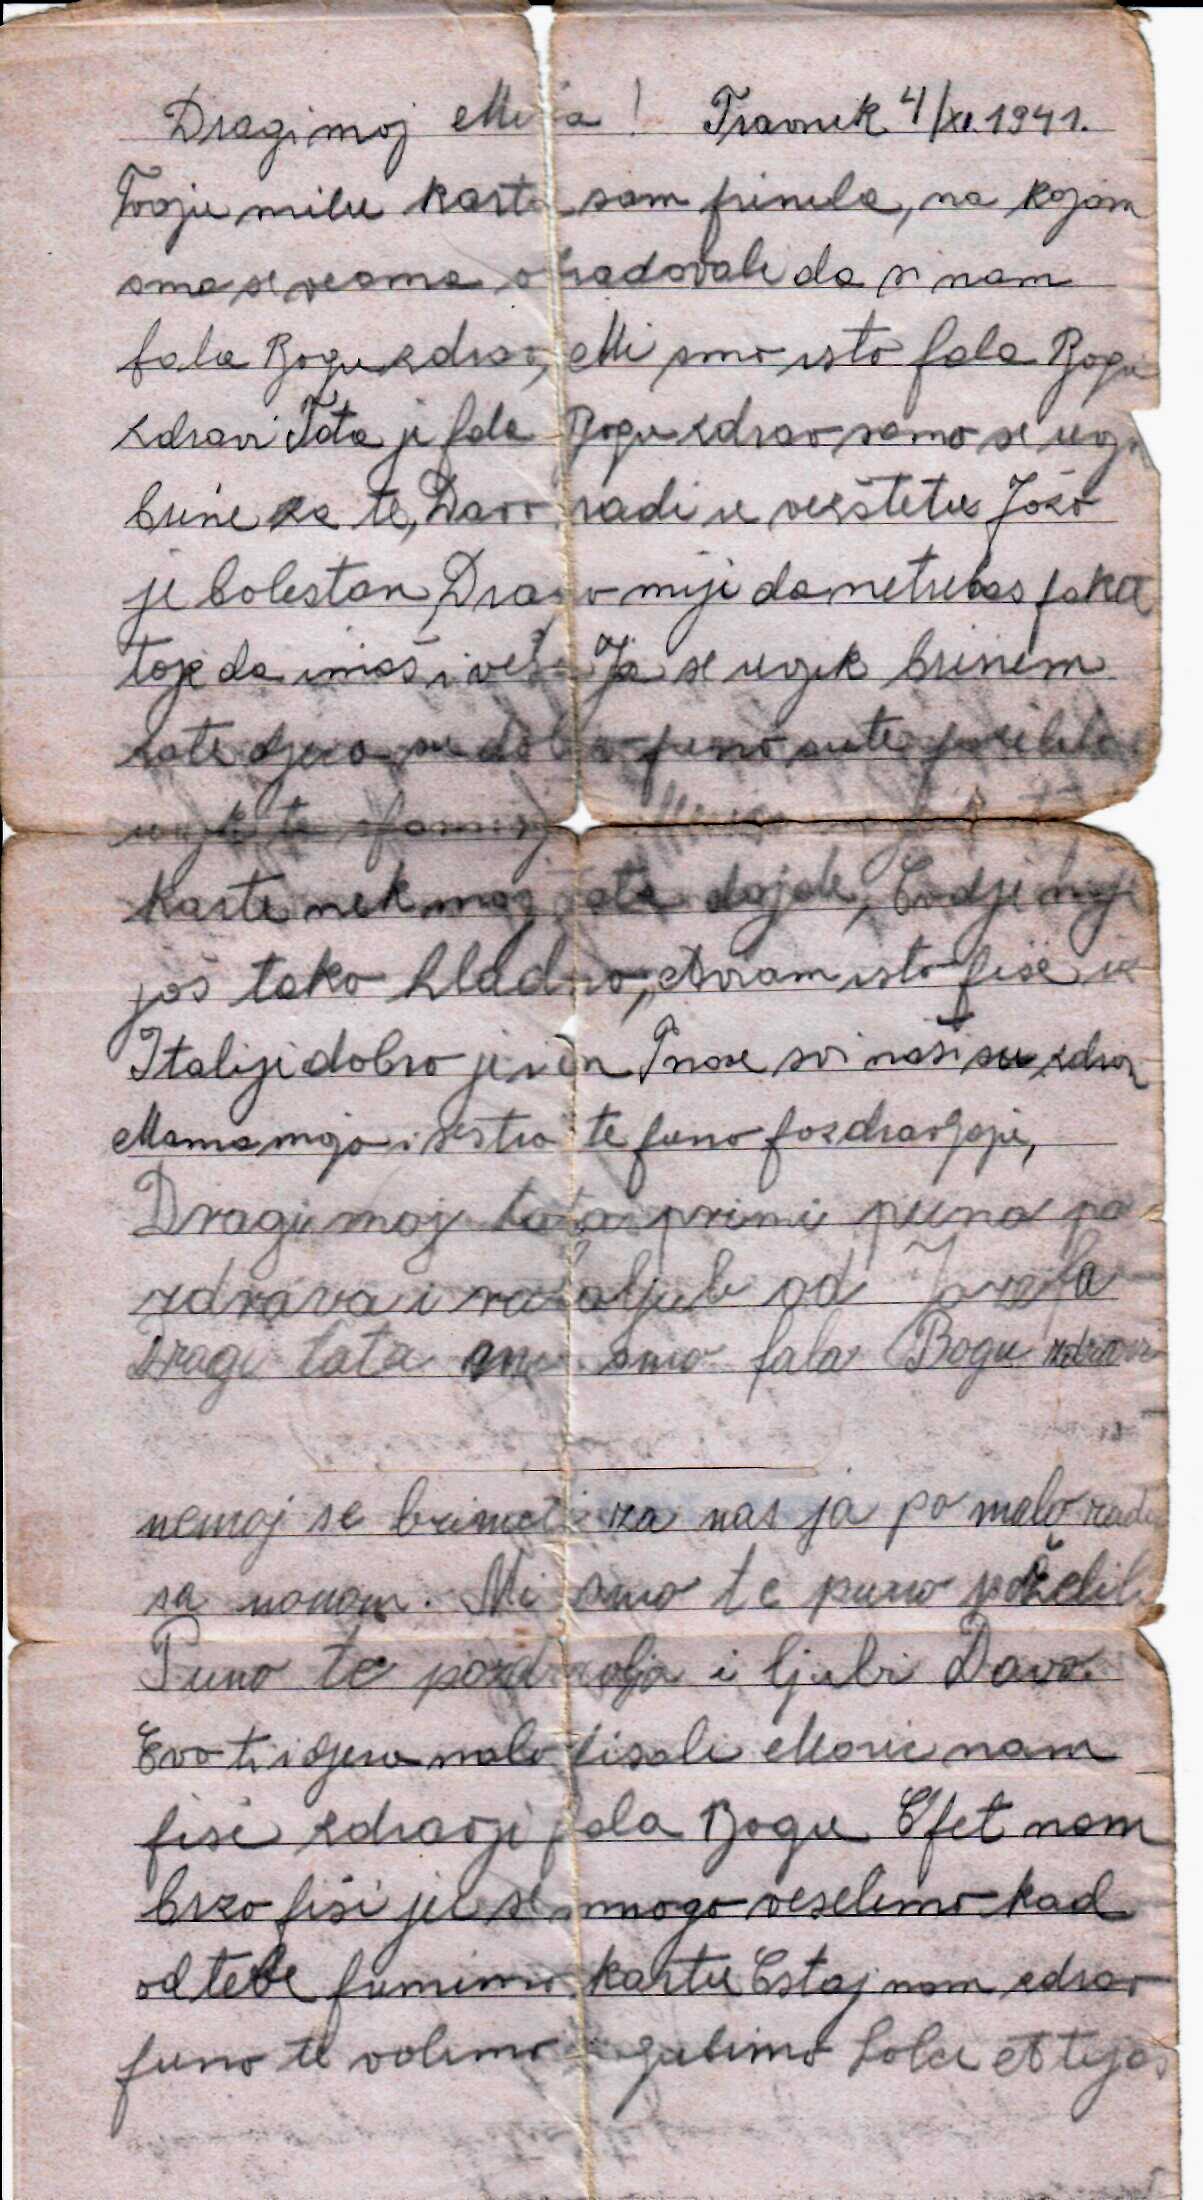 Dragi moj Miša! Travnik 4/XI.1941.
Tvoju milu kartu sam primila, na kojom
smo se veoma obradovali da si nam
fala Bogu zdrav, Mi smo isto fala Bogu
zdravi Tata je fala Bogu zdrav samo se
brine za te, Davo radi u Jozo
je bolestan Drago mi je da ne trebas
to je da imaš i veša Ja se uvjek brinem
za te djeca su dobra puno su te poželila
uvjek te
karte nek moj tata dojde, Ovdje nije
još tako hladno, Avram isto piše iz
Italije dobro je svi naši su zdravi
Mama moja i sestra te puno pozdravljaju,
Dragi moj tata primi puno po
zdrava i od Jozefa
Dragi tata mi smo fala Bogu zdravi
nemoj se brineti za nas ja po malo radim
sa nonom. Mi smo te puno poželili
Puno te pozdravlja i ljubi Davo.
Evo ti i djeca malo pisali Moric nam
piše zdrav je fala Bogu Opet nam
brzo piši jer se mnogo veselimo kad
od tebe primimo kartu Ostaj nam zdrav
puno te volimo